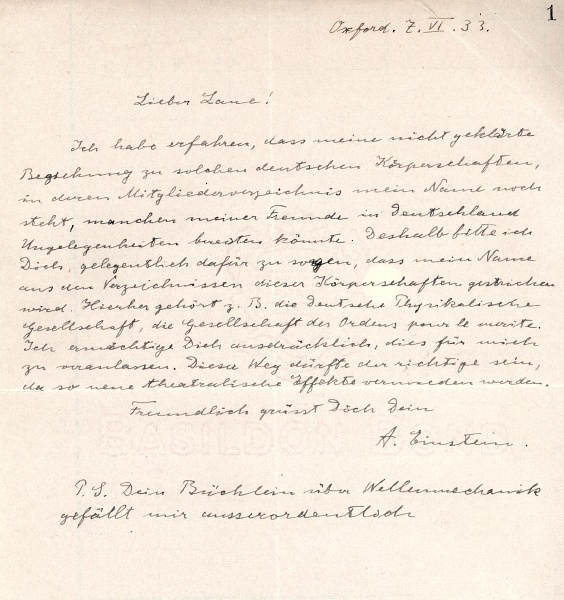 1
Oxford. 7. VI. 33.
Lieber Laue!
Ich habe erfahren, dass meine nicht geklärte
Beziehung zu solchen deutschen Körperschaften,
in deren Mitgliederverzeichnis mein Name noch
steht, manchen meiner Freunde in Deutschland
Ungelegenheiten bereiten könnte. Deshalb bitte ich
Dich, gelegentlich dafür zu sorgen, dass mein Name
aus den Verzeichnissen dieser Körperschaften gestrichen
wird. Hierher gehört z. B. die Deutsche Physikalische
Gesellschaft, die Gesellschaft des Ordens pour le merite.
Ich ermächtige Dich ausdrücklich, dies für mich
zu veranlassen. Dieser Weg dürfte der richtige sein,
da so neue theatralische Effekte vermieden werden.
Freundlich grüsst Dich Dein
A. Einstein.
P.S. Dein Büchlein über Wellenmechanik
gefällt mir ausserordentlich